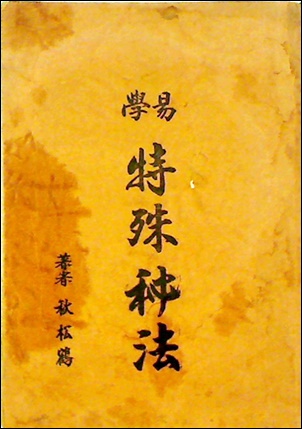 易學
特殊种法
著者 秋松鶴